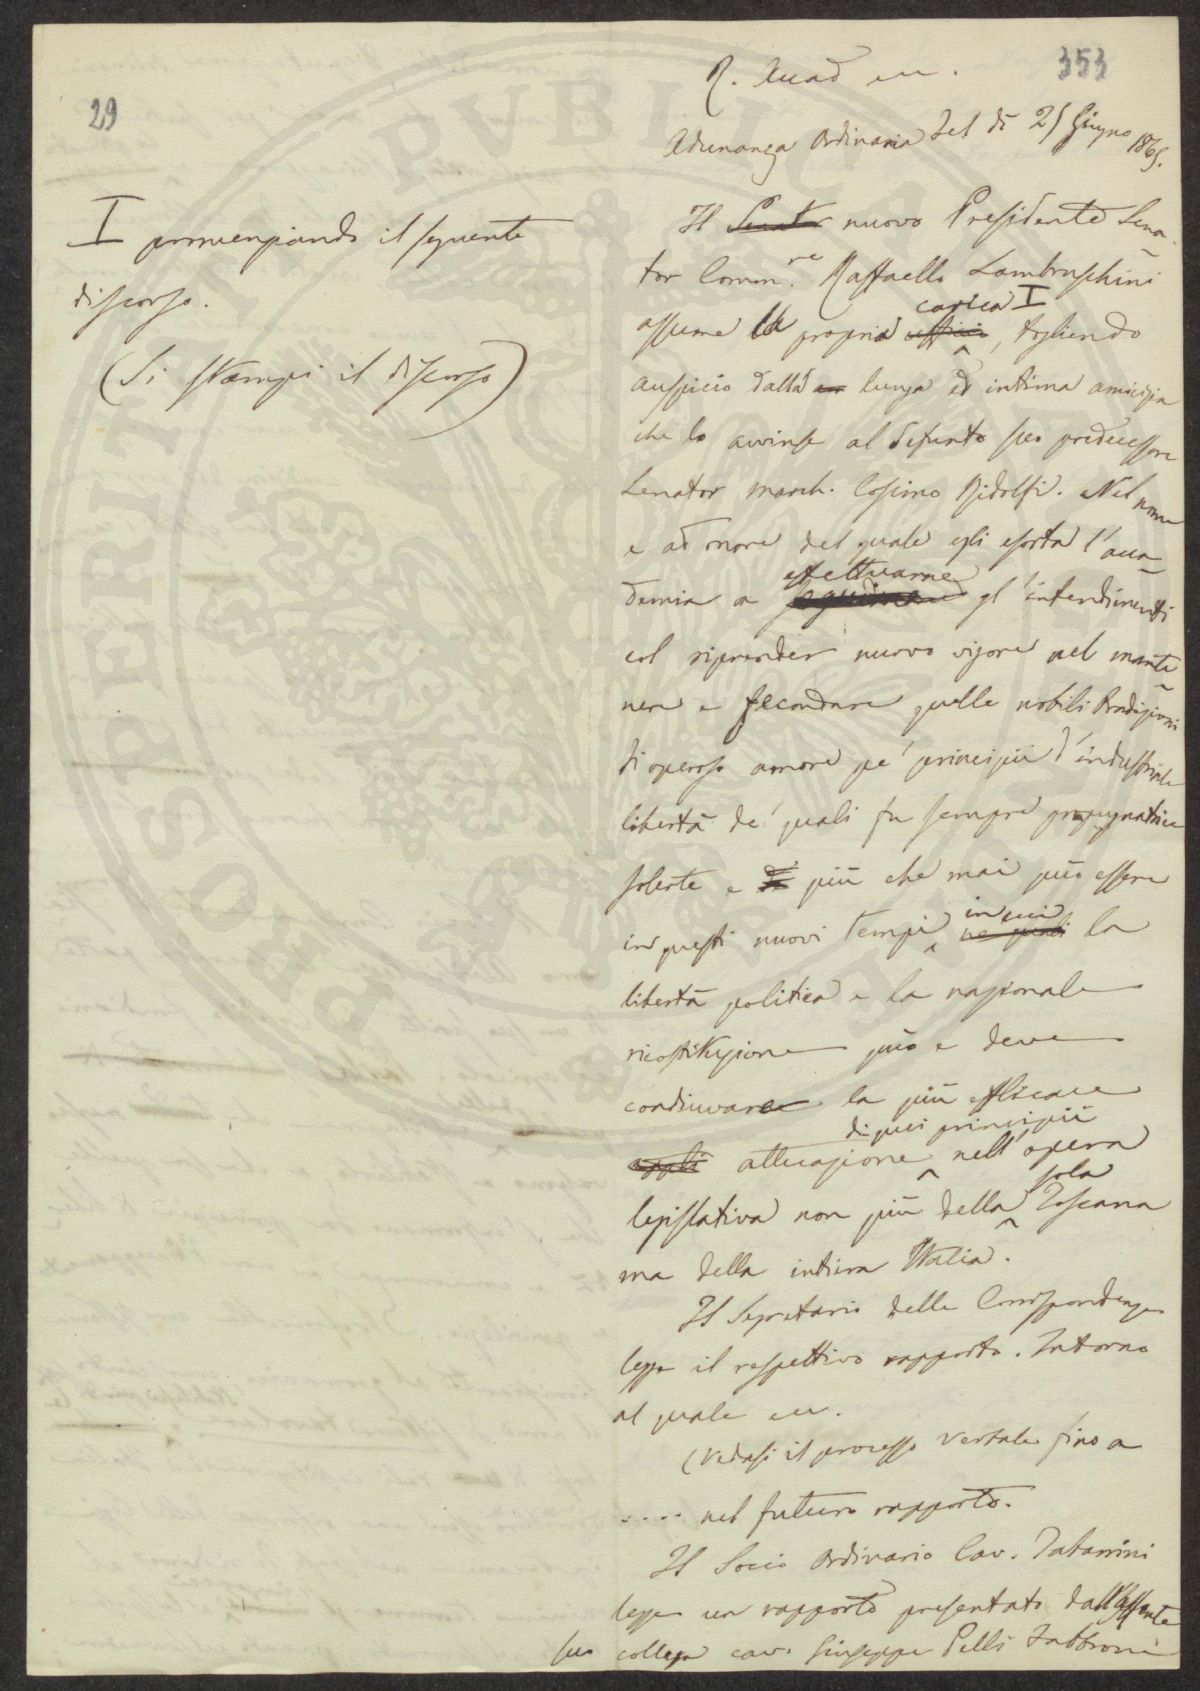 353
29
R. Accad ecc.
Adunanza Ordinaria del dì 25 Giugno 1865.
I pronunziando il seguente
discorso.
(Si stampi il discorso)
Il Senator nuovo Presidente Sena-
tor Comm.re Raffaello Lambruschini
carica I
assume la propria uffici, togliendo
auspicio dalla lunga ed intima amicizia
che lo avvinse al defunto suo predecessore
Senator march. Cosimo Ridolfi. Nel nome
e ad onore del quale egli esorta l'acca-
effettuarne
demia a seguirne gl'intendimenti
col riprender nuovo vigore nel mante-
nere e fecondare quelle nobili tradizioni
di operoso amore pe' principii d'industriale
libertà de' quali fu sempre propugnatrice
solerte e di più che mai può essere
in cui
in questi nuovi tempi ne' quali la
libertà politica e la nazionale
ricostituzione può e deve
coadiuvare la più efficace
di quei principii
attuazione nell'opera
sola
legislativa non più della Toscana
ma della intiera Italia.
Il Segretario delle Corrispondenze
legge il respettivo rapporto. Intorno
al quale ecc.
(Vedasi il processo verbale fino a
.... nel futuro rapporto.
Il Socio Ordinario Cav. Tabarrini
legge un rapporto presentato dall'assente
suo collega cav. Giuseppe Pelli Fabbroni
PROSPERITATI PVBLICAE